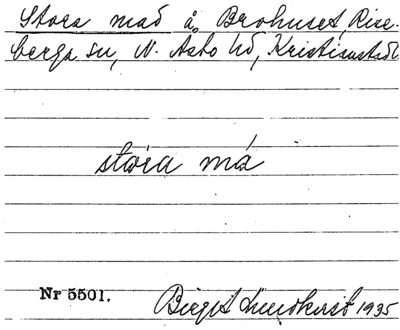 Stora mad å Brohuset, Rise-
berga sn, N. Åsbo hd, Kristianstads l.
stora má
Nr 5501.
Birgit Lundkvist 1935